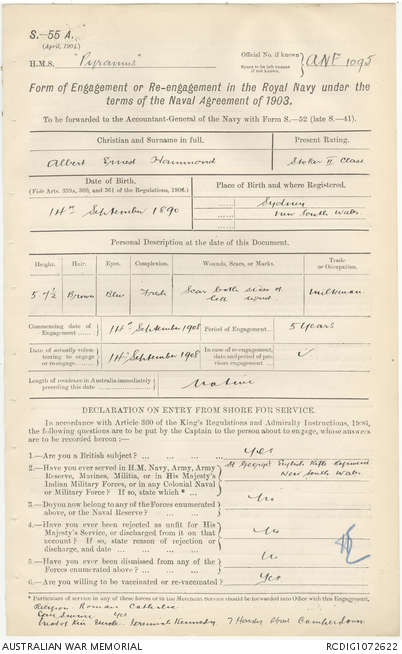 S.—55 A.
(April, 1904.)
H.M.S. "Pyramus"
Official No. if known
Space to be left vacant if not known.
ANF 1095
Form of Engagement or Re-engagement in the Royal Navy under the
terms of the Naval Agreement of 1903.
To be forwarded to the Accountant-General of the Navy with Form S.—52 (late S.—41).
Christian and Surname in full. Present Rating.
Albert Ernest Hammond Stoker II Class
Date of Birth.
(Vide Arts. 359a, 360, and 361 of the Regulations, 1906.)
Place of Birth and where Registered.
14th September 1890
Sydney
New South Wales
Personal Description at the date of this Document.
Height. Hair. Eyes. Complexion. Wounds, Scars, or Marks. Trade or Occupation.
5 7½ Brown Blue Fresh Scar both sides of left wrist. Milkman
Commencing date of Engagement 14th September 1908 Period of Engagement 5 Years
Date of actually volunteering to engage or re-engage 14th September 1908 In case of re-engagement, date and period of previous engagement
Length of residence in Australia immediately preceding this date Native
DECLARATION ON ENTRY FROM SHORE FOR SERVICE.
In accordance with Article 360 of the King's Regulations and Admiralty Instructions, 1906,
the following questions are to be put by the Captain to the person about to engage, whose answers
are to be recorded hereon:—
1.—Are you a British subject? Yes
2.—Have you ever served in H.M. Navy, Army, Army Reserve, Marines, Militia, or in His Majesty's Indian Military Forces, or in any Colonial Naval or Military Force? If so, state which *
St George's English Rifle Regiment
New South Wales
3.—Do you now belong to any of the Forces enumerated above, or the Naval Reserve? No
4.—Have you ever been rejected as unfit for His Majesty's Service, or discharged from it on that account? If so, state reason of rejection or discharge, and date No
5.—Have you ever been dismissed from any of the Forces enumerated above? No
6.—Are you willing to be vaccinated or re-vaccinated? Yes
* Particulars of service in any of these forces or in the Merchant Service should be forwarded into Office with this Engagement.
Religion Roman Catholic
Can Swim Yes
Next of Kin Uncle Kennedy 7 Street Camperdown
AUSTRALIAN WAR MEMORIAL
RCDIG1072622